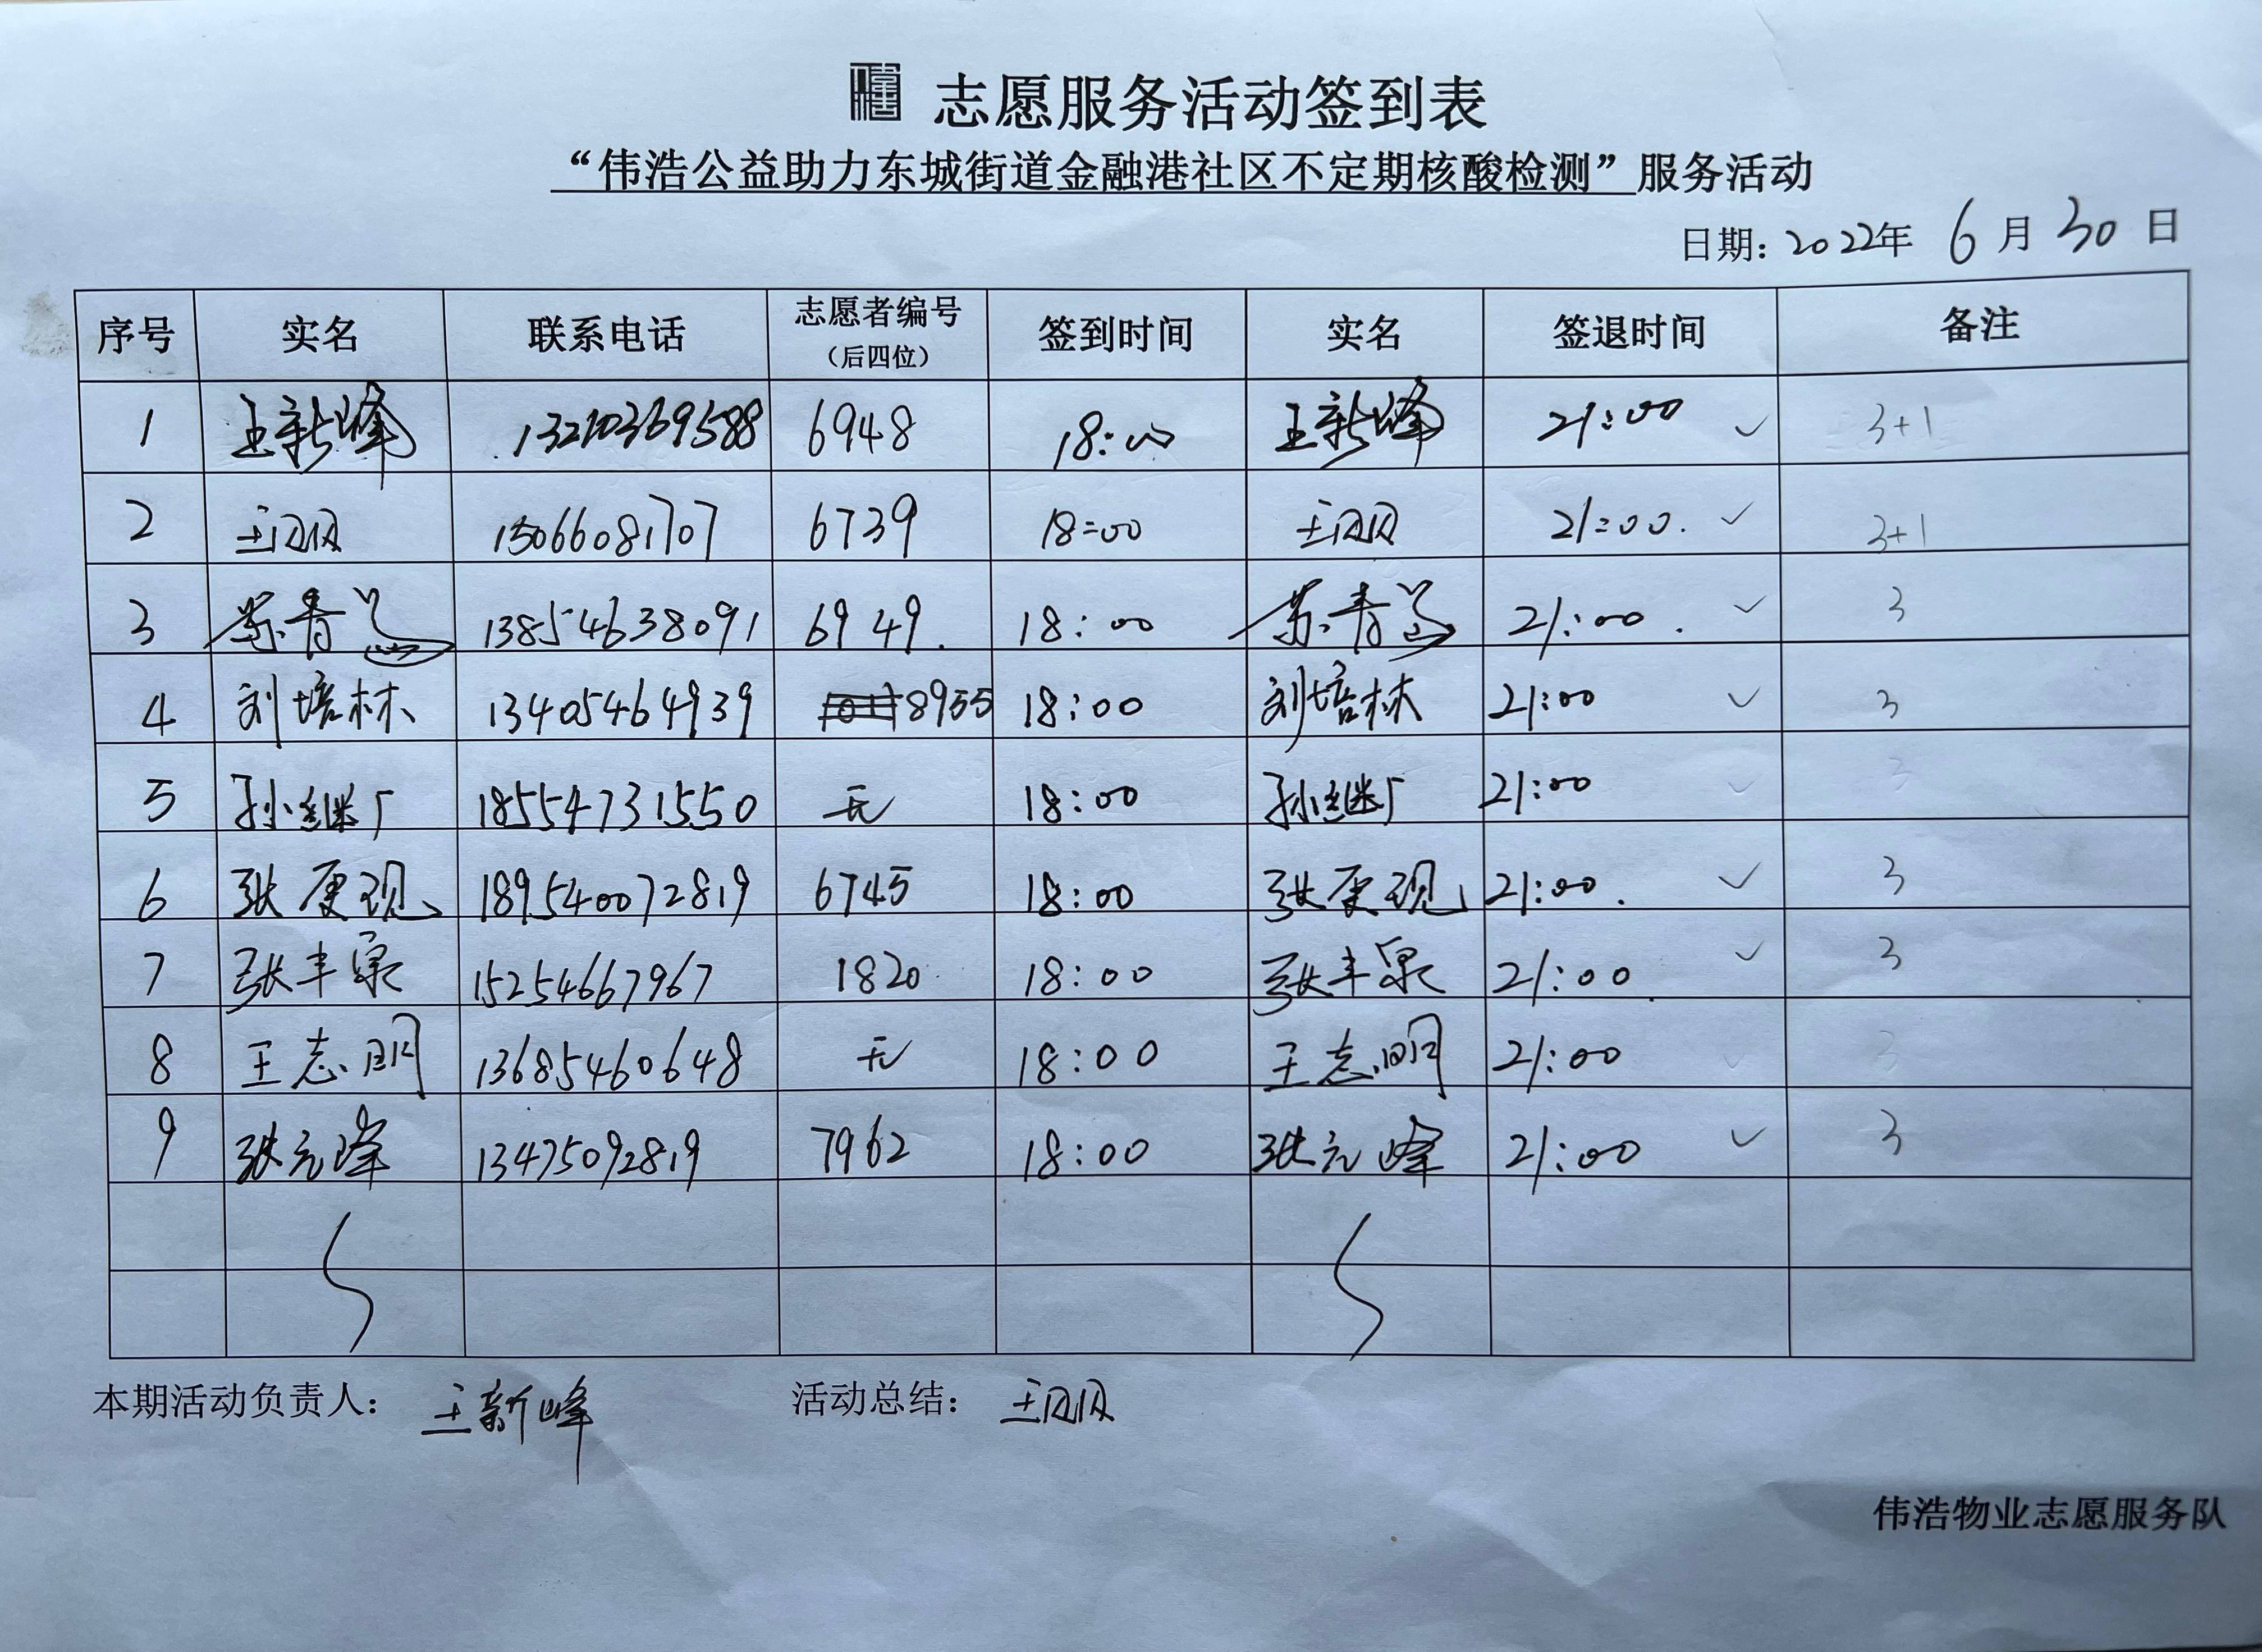 志愿服务活动签到表
“伟浩公益助力东城街道金融港社区不定期核酸检测”服务活动
日期: 2022年 6月30日
序号 实名 联系电话 志愿者编号（后四位） 签到时间 实名 签退时间 备注
1 王新峰 13210369588 6948 18:00 王新峰 21:00 ✓ 3+1
2 王丹丹 15066081707 6739 18:00 王丹丹 21:00. ✓ 3+1
3 苏青 13854638091 6949. 18:00 苏青 21:00. ✓ 3
4 刘培林 13405464939 8955 18:00 刘培林 21:00 ✓ 3
5 孙继广 18554731550 无 18:00 孙继广 21:00 ✓ 3
6 张更现 189540072819 6745 18:00 张更现 21:00. ✓ 3
7 张丰泉 15254667967 1820 18:00 张丰泉 21:00. ✓ 3
8 王志明 13685460648 无 18:00 王志明 21:00 ✓ 3
9 张元峰 13475092819 7962 18:00 张元峰 21:00 ✓ 3
本期活动负责人: 王新峰 活动总结: 王丹丹
伟浩物业志愿服务队